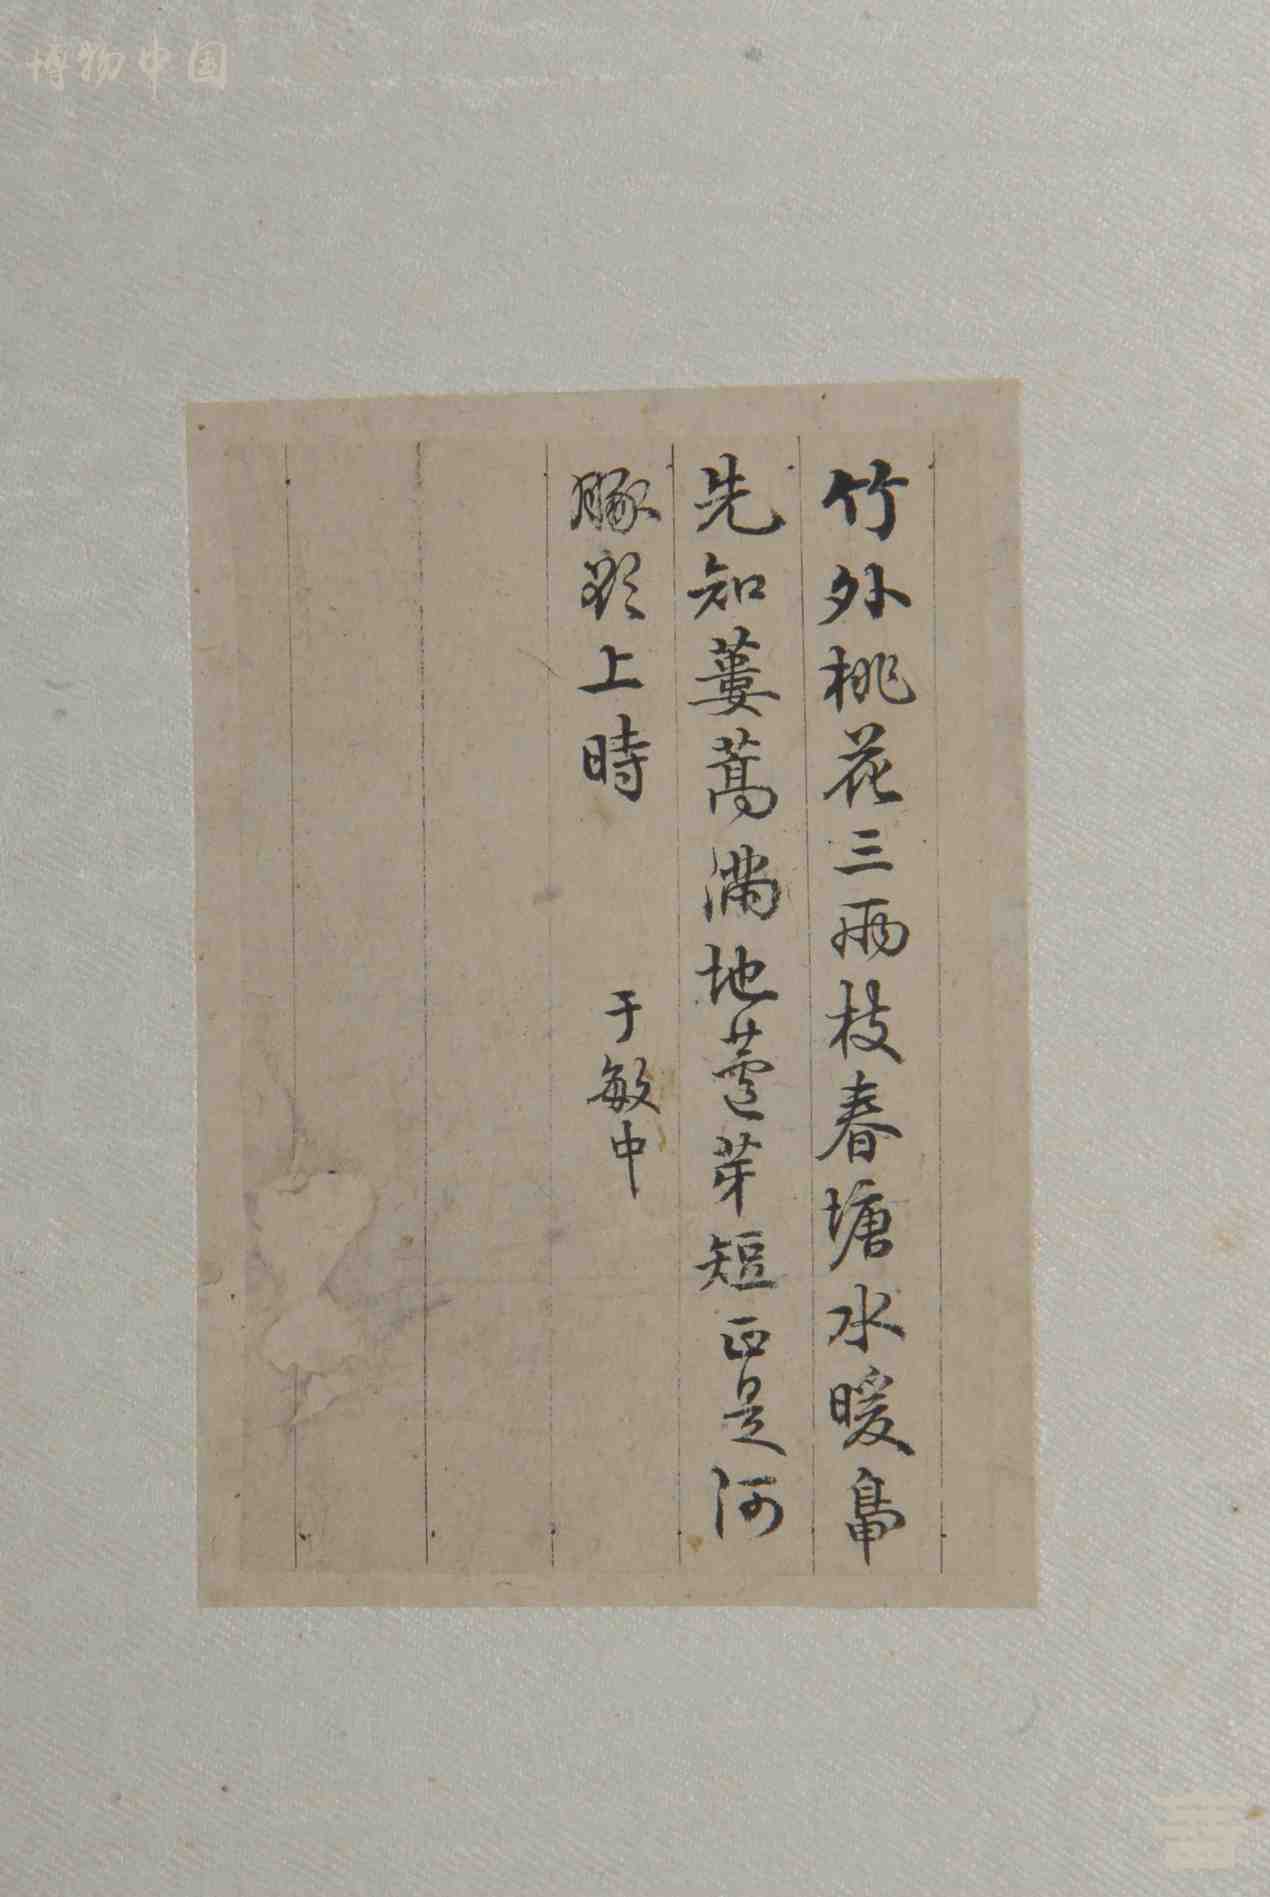 竹外桃花三兩枝春塘水暖鳧
先知蔞蒿滿地蘆芽短正是河
豚欲上時
于敏中
博物中国